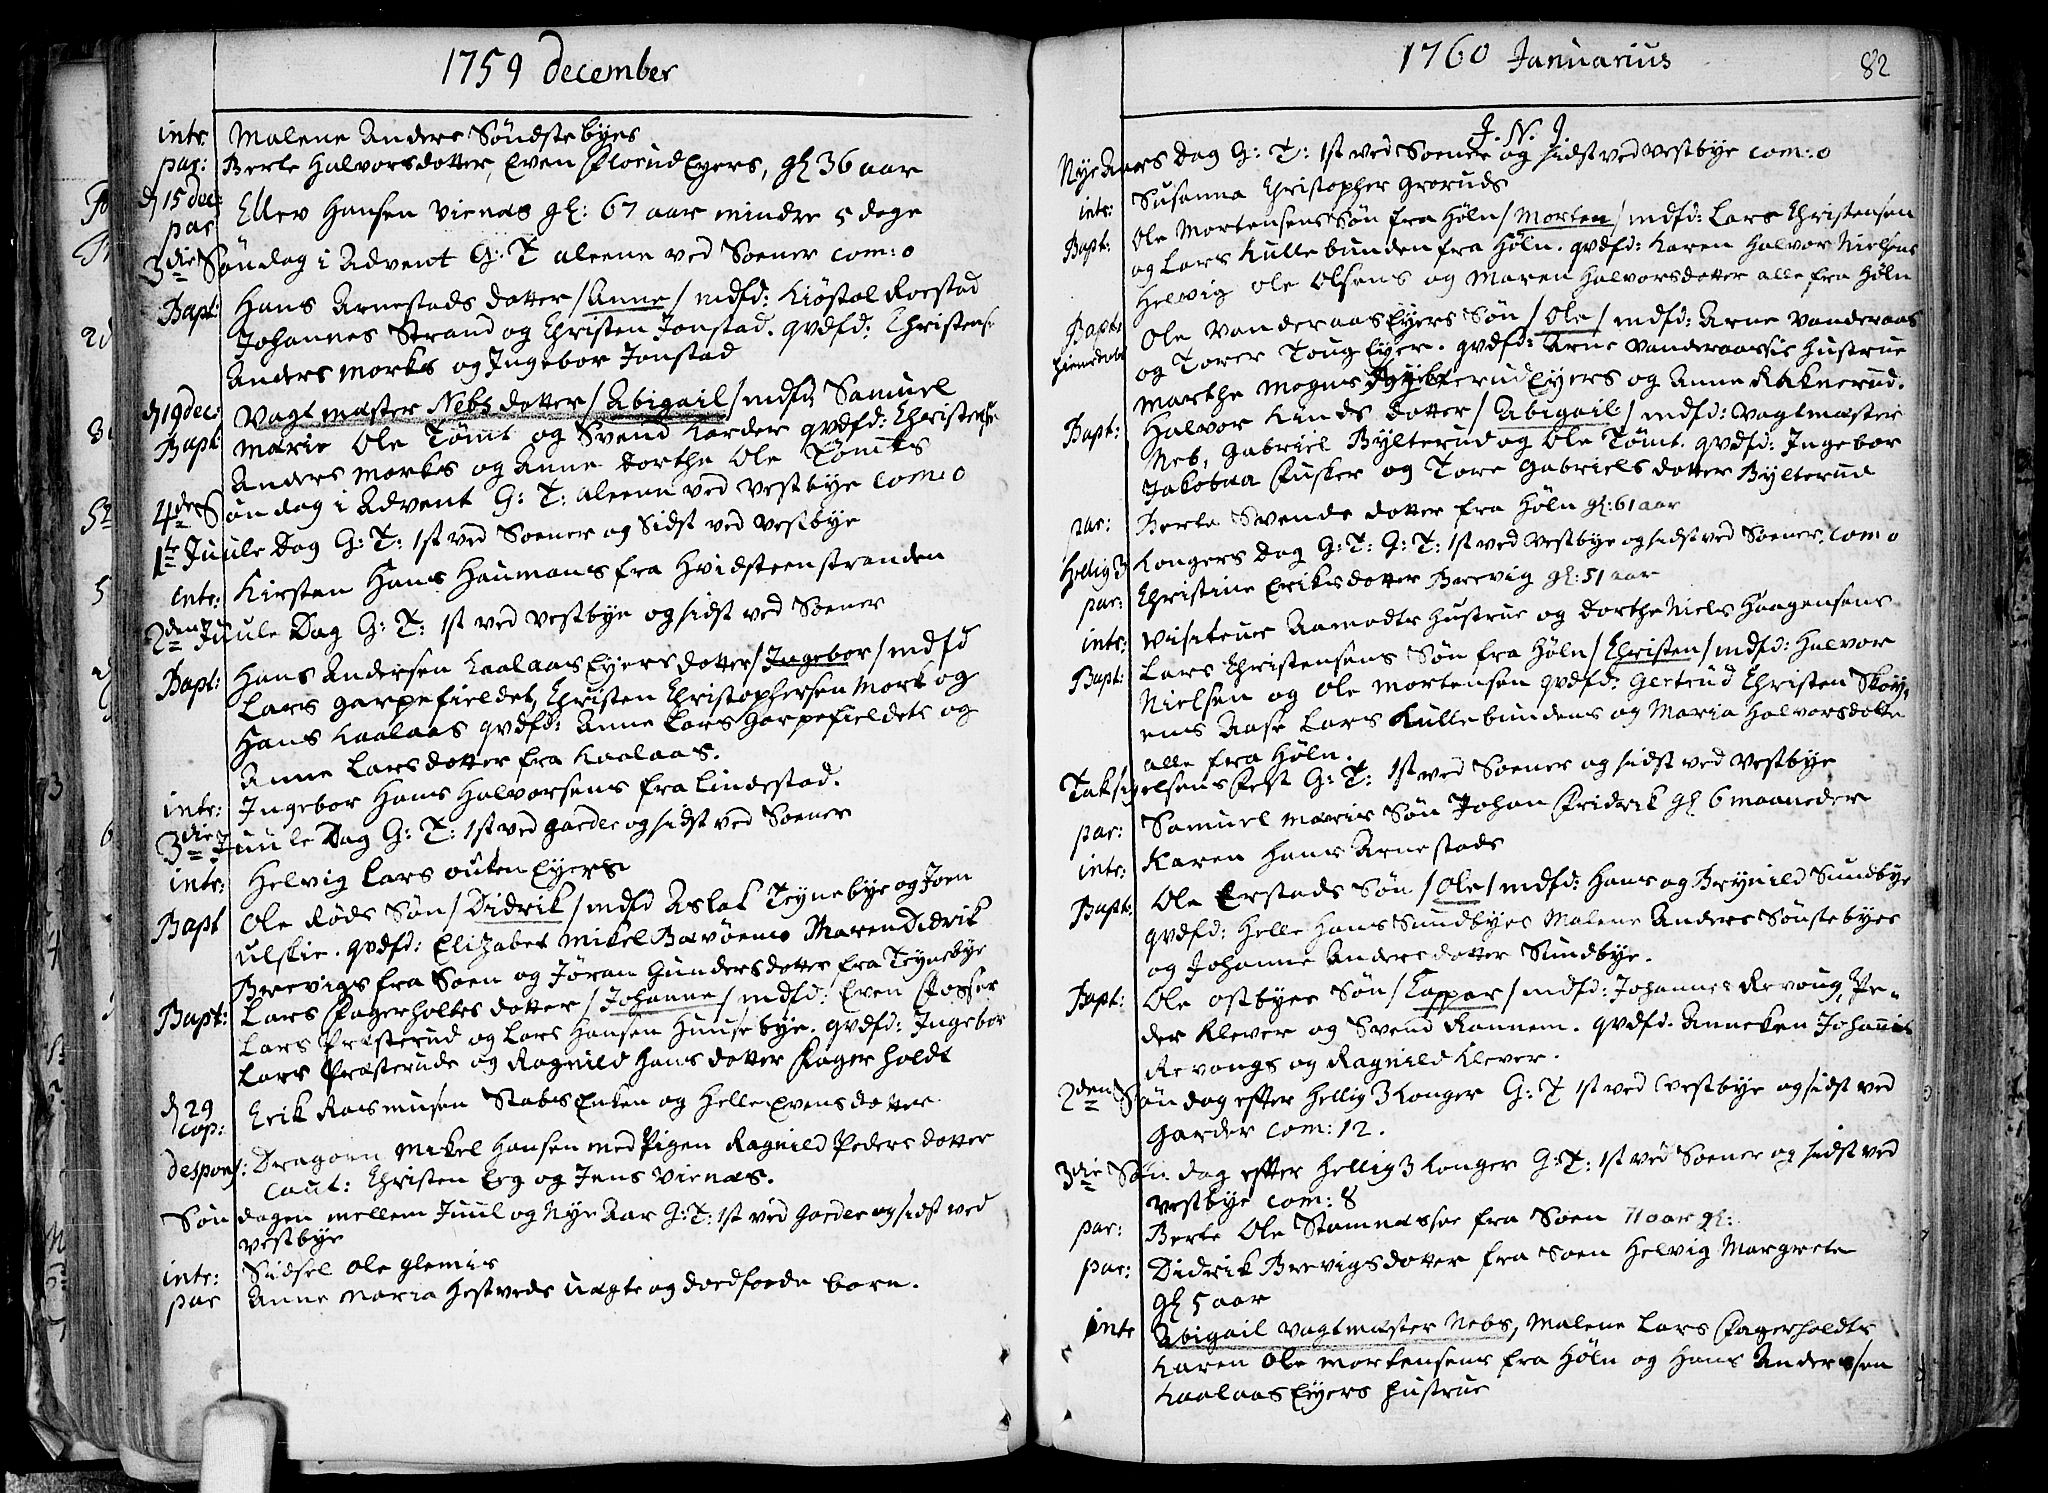 1759 december
intr: Malene Anders Söndstebyes
par: Berte Halvorsdotter, Even Floerud Eyers, gl 36 aar
d 15 dec:
par Ellev Hansen Vienæs gl: 67 aar mindre 5 dage
3die Söndag i Advent G: T aleene ved Soener com: 0
Bapt: Hans Arnestads dotter / Anne / mdfd: Kiöstol Roestad
Johannes Strand og Christen Jonstad. qvdfd: Christense
Anders Morks og Ingebor Jonstad
d 19 dec: Vagtmæster Nebs dotter / Abigail / mdfd Samuel
Bapt Marie Ole Tömt og Svend Karder qvdfd: Christense
Anders Morks og Anne Dorthe Ole Tömts
4de Söndag i Advent G: T: aleene ved Vestbye com: 0
1te Juule Dag G: T: 1st ved Soener og Sidst ved Vestbye
intr: Kirsten Hans Haumans fra Hvidsteenstranden
2den Juule Dag G: T: 1st ved Vestbye og sidst ved Soener
Bapt: Hans Andersen Kaalaas Eyers dotter / Ingebor / mdfd
Lars Garpefieldet, Christen Christophersen Mork og
Hans Kaalaas qvdfd: Anne Lars Garpefieldets og
Anne Larsdotter fra Kaalaas.
intr: Ingebor Hans Halvorsens fra Lindestad.
3die Juule Dag G: T: 1st ved Garder og sidst ved Soener
intr: Helvig Lars outen Eyers
Bapt Ole Röds Sön / Didrik / mdfd Aslak Teynebye og Joen
Ulskie. qvdfd: Elizabet Mikel Bævöens Maren Didrik
Brevigs fra Soen og Jöran Gundersdotter fra Teynebye
Bapt: Lars Fagerholtes dotter / Johanne / mdfd: Even Fosser
Lars Præsterud og Lars Hansen Huusebye. qvdfd: Ingebor
Lars Præsteruds og Ragnild Hansdotter Fagerholdt
d 29
cop: Erik Rasmusen Stabs Enken og Helle Evensdotter
despons: Dragoen Mikel Hansen med Pigen Ragnild Pedersdotter
caut: Christen Erg og Jens Vienæs.
Söndagen mellem Juul og Nye Aar G: T: 1st ved Garder og sidst ved
Vestbye
intr: Sidsel Ole Glemis
par Anne Maria Hestveds uægte og doedfoede barn.
1760 Januarius
82
J. N. J.
Nye Aars Dag G: T: 1st ved Soener og sidst ved Vestbye com: 0
intr: Susanna Christopher Groruds
Bapt: Ole Mortensens Sön fra Höln / Morten / mdfd: Lars Christensen
og Lars Kullebunden fra Höln. qvdfd: Karen Halvor Nielsens
Helvig Ole Olsens og Maren Halvorsdotter alle fra Höln
Bapt: Ole Vanderaas Eyers Sön / Ole / mdfd: Arne Vanderaas
og Torer Toug Eyer. qvdfd: Arne Vanderaasis Hustrue
Marthe Mogns Eyers og Anne Raknerud.
Bapt: Halvor Kinds dotter / Abigail / mdfd: Vagtmæster
Neb, Gabriel Bylterud og Ole Tömt. qvdfd: Ingebor
Jakobaa Fusker og Tore Gabrielsdotter Bylterud
par: Berte Svendsdotter fra Höln gl: 61 aar
Hellig 3 Kongers Dag G: T: G: T: 1st ved Vestbye og sidst ved Soener. com: 0
par: Christine Eriksdotter Brevig gl: 51 aar
intr: Visiteur Aamodts Hustrue og Dorthe Niels Haagensens
Bapt: Lars Christensens Sön fra Höln / Christen / mdfd: Halvor
Nielsen og Ole Mortensen qvdfd: Gertrud Christen Sköy,
ens Aase Lars Kullebundens og Maria Halvorsdotter
alle fra Höln.
Taksigelsens Fest G: T: 1st ved Soener og sidst ved Vestbye
par: Samuel Maris Sön Johan Fridrik gl 6 maaneder
intr: Karen Hans Arnestads
Bapt: Ole Erstads Sön / Ole / mdfd: Hans og Brynild Sundbye
qvdfd: Helle Hans Sundbyes Malene Anders Sönstebyes
og Johanne Andersdotter Sundbye.
Bapt: Ole Ostbyes Sön / Casper / mdfd: Johannes Revoug, Pe-
der Klever og Svend Rannem. qvdfd. Anneken Johannis
Revougs og Ragnild Klever.
2den Söndag efter Hellig 3 Konger G: T 1st ved Vestbye og sidst ved
Garder com: 12.
3die Söndag efter Hellig 3 Konger G: T: 1st ved Soener og sidst ved
Vestbye com: 8
par: Berte Ole Stamnæssae fra Soen 71 aar gl:
par: Didrik Brevigs dotter fra Soen Helvig Margrete
gl 5 aar
intr Abigail Vagtmæster Nebs, Malene Lars Fagerholdts
Karen Ole Mortensens fra Höln og Hans Andersen
Kaalaas Eyers Hustrue